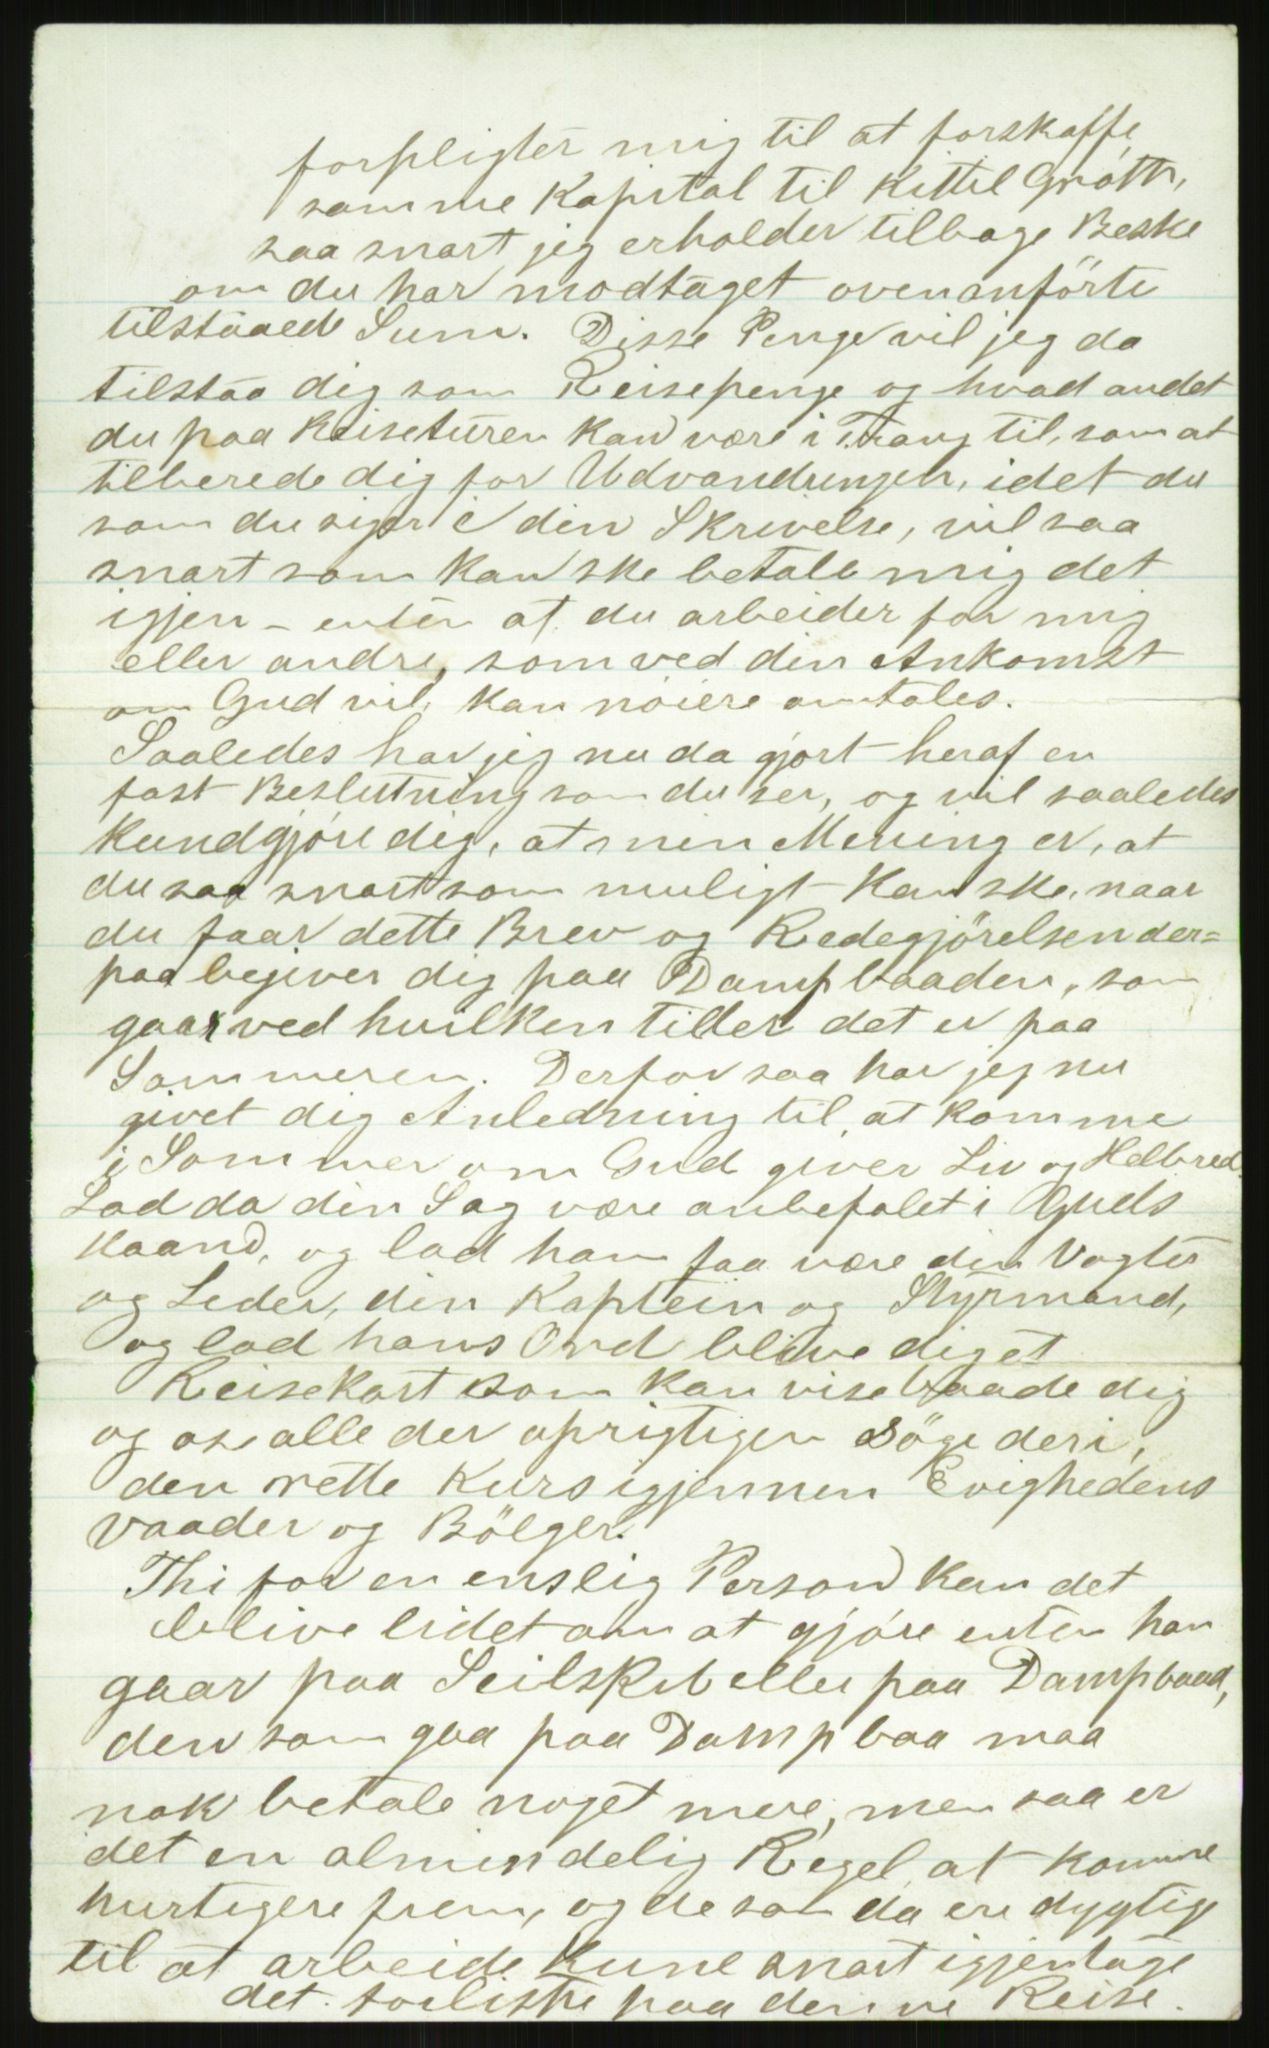 forpligter mig til at forskaffe
samme Kapital til Kittil Grótti,
saa snart jeg erholder tilbage Beske
om du har modtaget ovenanförte
tilstaaede Sum. Disse Penge vil jeg da
tilstaa dig som Reisepenge og hvad andet
du paa Reiseturen kan være i Trang til, som at
tilberede dig for Udvandringen, idet du
som du siger i din Skrivelse, vil saa
snart som kan ske betale mig det
igjen - enten at du arbeider for mig
eller andre, som ved din Ankomst
om Gud vil, kan nóiere omtales.
Saaledes har jeg nu da gjort heraf en
fast Beslutning som du ser, og vil saaledes
kundgjóre dig, at min Mening er, at
du saa snart som muligt kan ske, naar
du faar dette Brev og Redegjörelsen der=
paa begiver dig paa Dampbaaden, som
gaar ved hvilken tider det er paa
Sommeren. Derfor saa har jeg nu
givet dig Anledning til at komme
i Sommer om Gud giver Liv og Helbred.
Lad da din Sag være anbefalet i Guds
Haand, og lad ham faa være din Vogter
og Leder, din Kaptein og Styrmand,
og lad hans Ord blive dig et
Reisekart som kan vise baade dig
og os alle der oprigtigen söge deri,
den rette Kurs igjennen Evighedens
Vaader og Bölger.
Thi for en enslig Person kan det
blive lidet om at gjóre enten han
gaar paa Seilskib eller paa Dampbaad,
den som gaa paa Dampbaa maa
nok betale noget mere, men saa er
det en almindelig Regel at komme
hurtigere frem, og de som da ere dygtige
til at arbeide kune snart igjentage
det paa denne Reise.